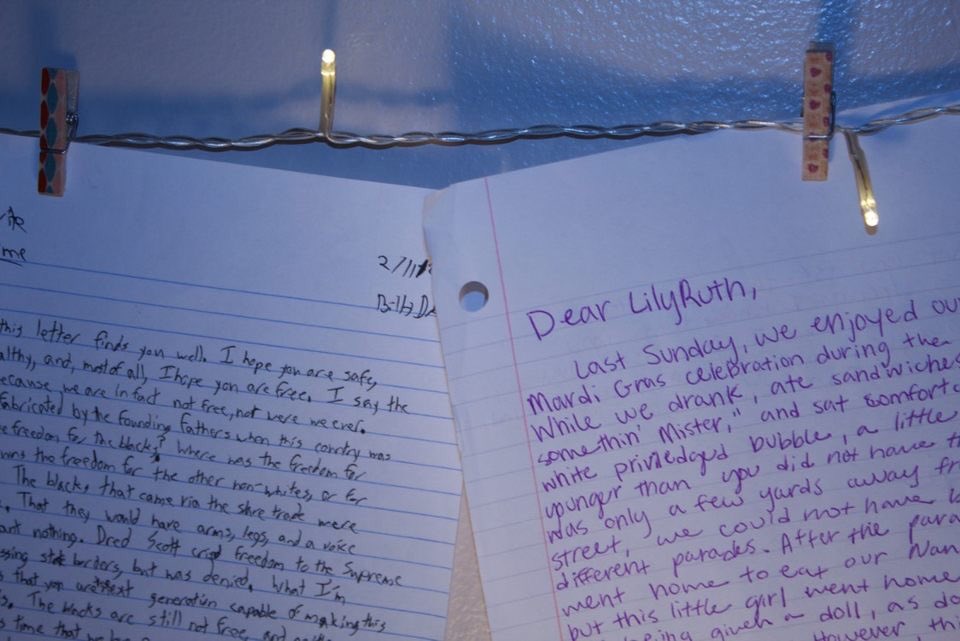 me
2/11
this letter finds you well. I hope you are safe,
althy, and, most of all, I hope you are free. I say the
ecause we are in fact not free, not were we ever.
fabricated by the founding fathers when this country was
e freedom for the blacks? Where was the freedom for
was the freedom for the other non-whites, or for
The blacks that came via the slave trade were
. That they would have arms, legs, and a voice
ant nothing. Dred Scott cried freedom to the Supreme
ssing state borders, but was denied. What I'm
s that you are next generation capable of making this
s. The blacks are still not free, and
s time that we
Dear LilyRuth,
Last Sunday, we enjoyed ou
Mardi Gras celebration during the
While we drank, ate sandwiches
somethin' Mister," and sat comfort
white priviledged bubble, a little
younger than you did not have th
was only a few yards away fr
street, we could not have b
different parades. After the para
went home to eat our Nan
but this little girl went home
being given a doll, as do
However thi